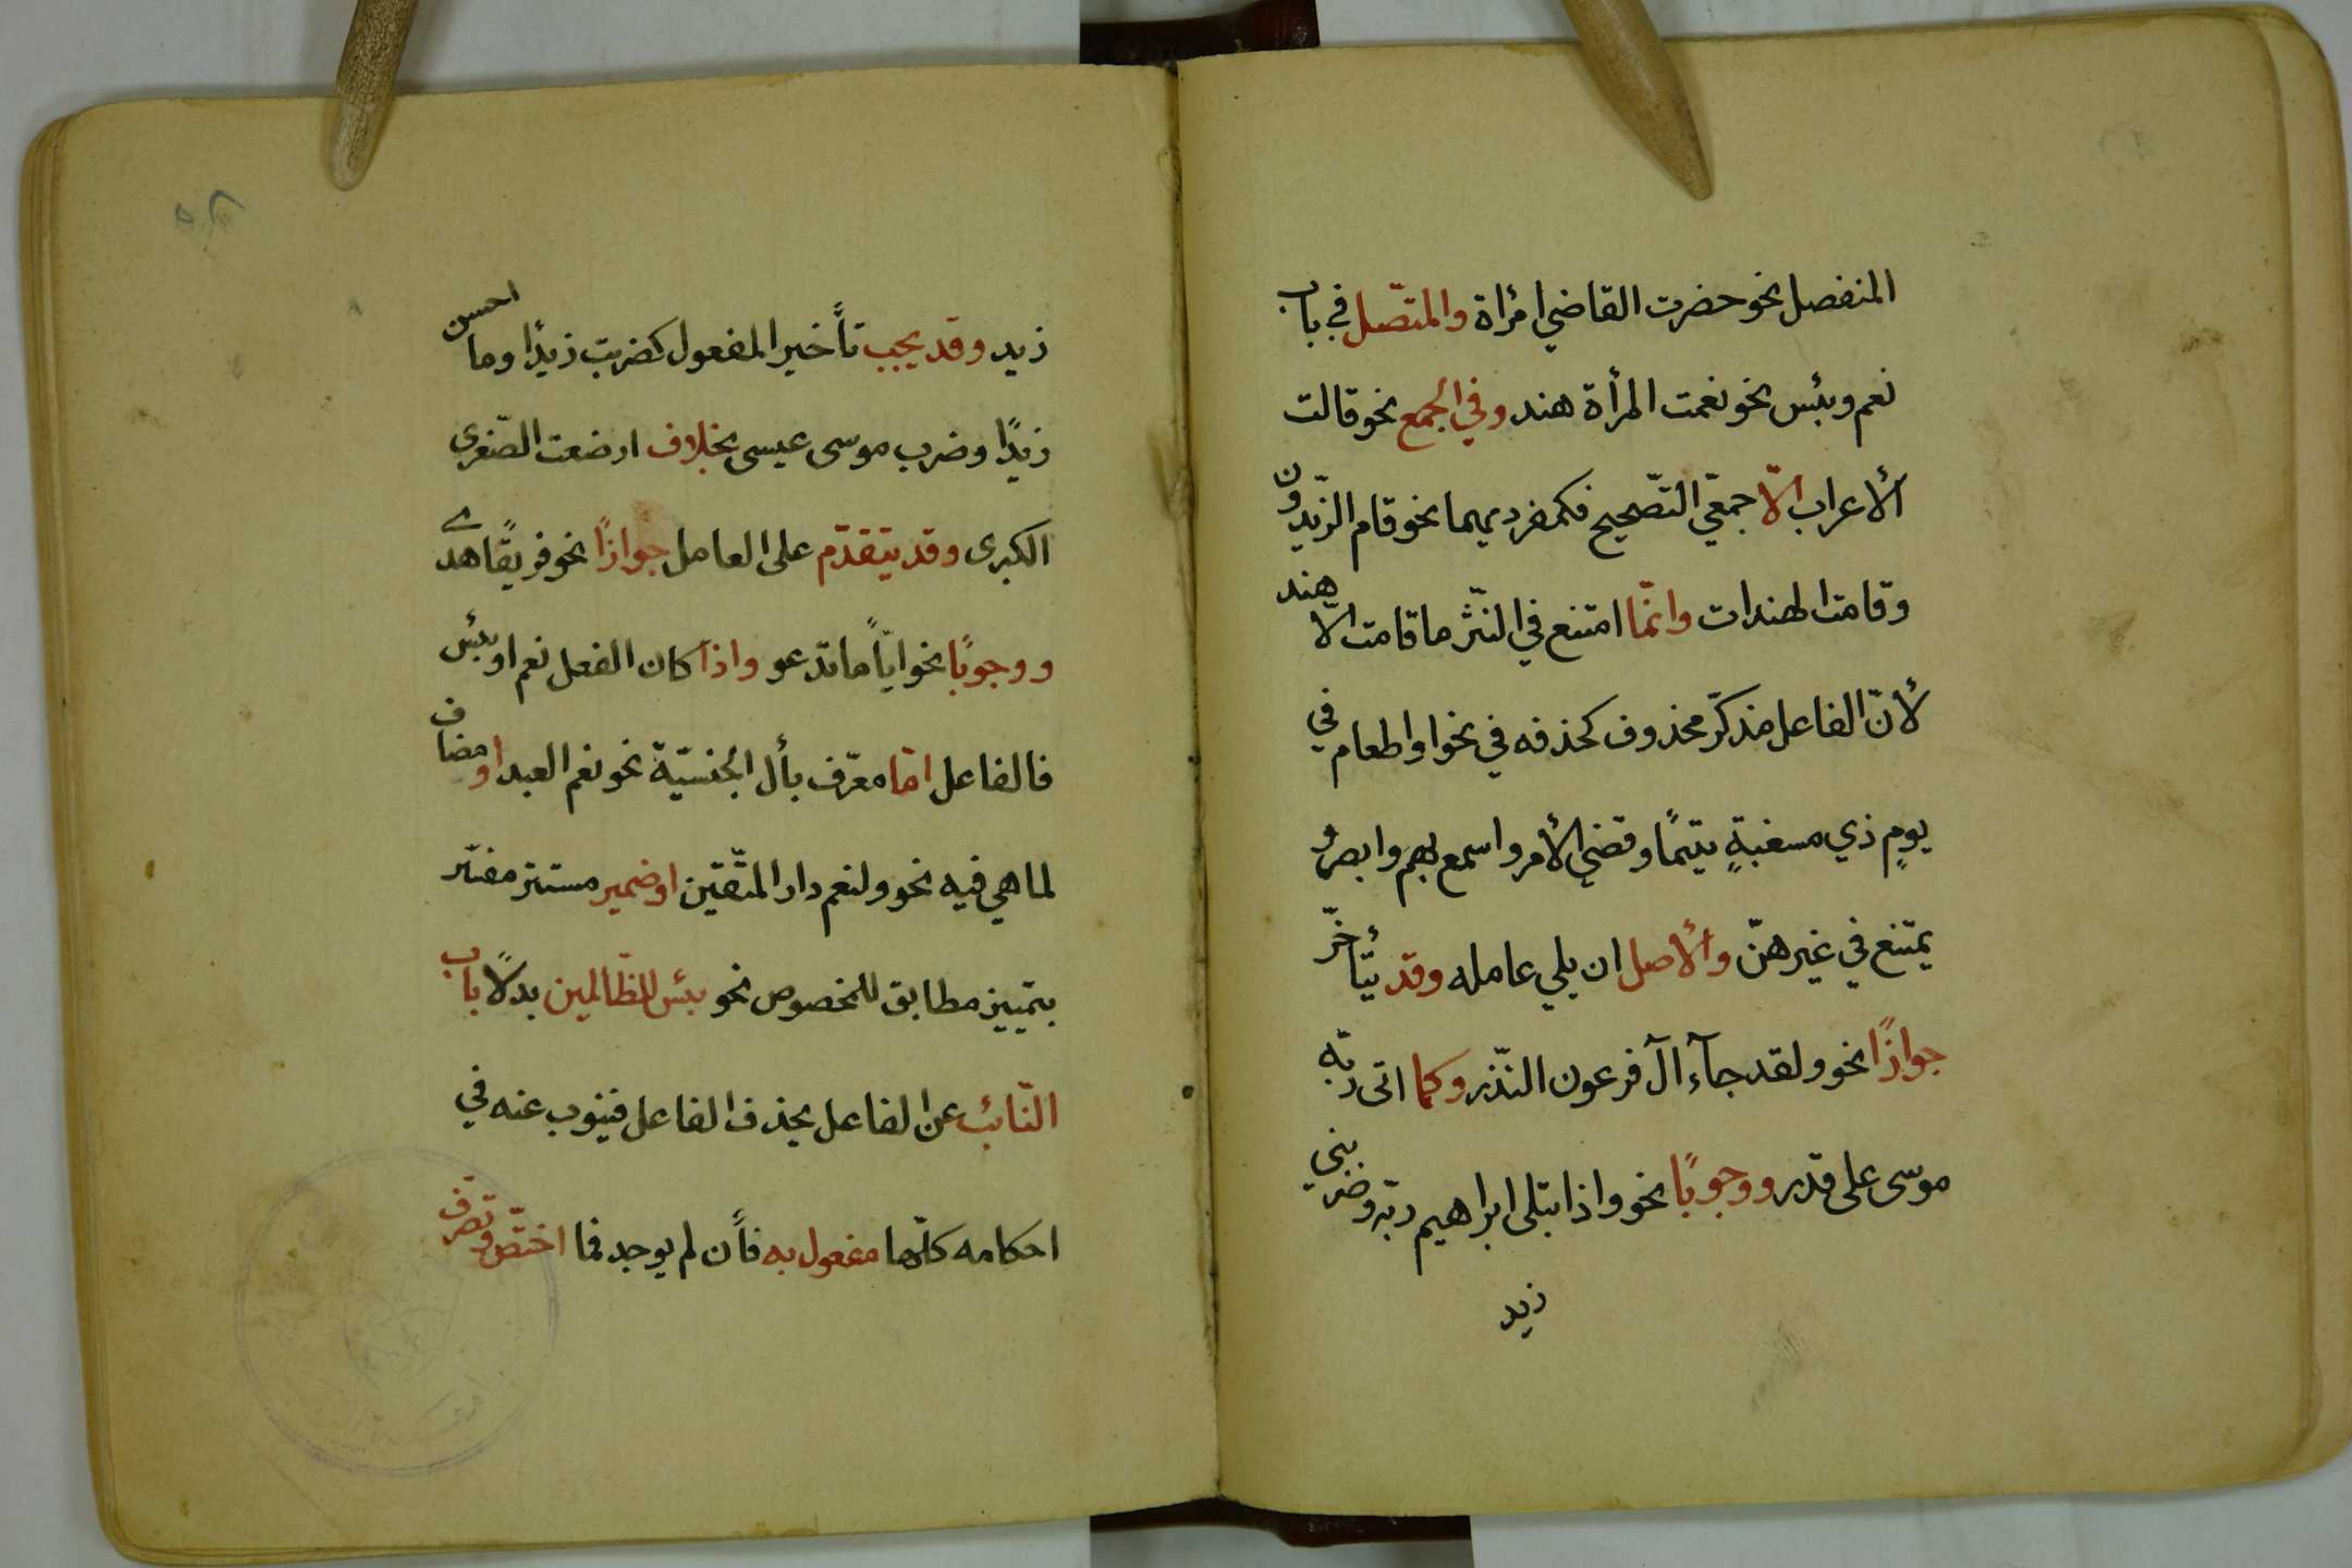 المنفصل نحو حضرت القاضي امرأة والمتّصل في باب
نعم وبئس نحو نعمت المرأة هند وفي الجمع نحو قالت
الأعراب الّا جمعَي التّصحيح فكمفرديهما نحو قام الزّيدون
وقامت الهندات وانّما امتنع في النّثر ما قامت الّا هند
لأنّ الفاعل مذكّر محذوف كحذفه في نحو او اطعام في
يومٍ ذي مسغبةٍ يتيمًا وقضي الأمر واسمع بهم وابصر و
يمتنع في غيرهنّ والأصل ان يلي عامله وقد يتأخّر
جوازًا نحو ولقد جآء آل فرعون النّذر وكما اتى ربّه
موسى على قدر ووجوبًا نحو واذ ابتلى ابراهيم ربّه وضربني
زيد
زيد وقد يجب تأخير المفعول كضربت زيدًا وما احسن
زيدًا وضرب موسى عيسى بخلاف ارضعت الصّغرى
الكبرى وقد يتقدّم على العامل جوازًا نحو فريقًا هدى
ووجوبًا نحو ايّاً ما تدعو واذا كان الفعل نعم او بئس
فالفاعل امّا معرّف بأل الجنسيّة نحو نعم العبد او مضاف
لما هي فيه نحو ولنعم دار المتّقين او ضمير مستتر مفسّر
بتمييز مطابق للمخصوص نحو بئس للظّالمين بدلًا باب
النّائب عن الفاعل يحذف الفاعل فينوب عنه في
احكامه كلّها مفعول به فأن لم يوجد فما اختصّ وتصرّف